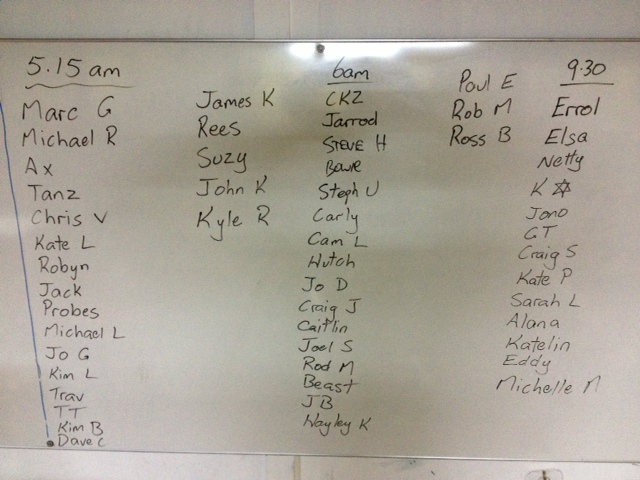 5.15 am
Marc G
Michael R
Ax
Tanz
Chris V
Kate L
Robyn
Jack
Probes
Michael L
Jo G
Kim L
Trav
TT
Kim B
Dave C
James K
Rees
Suzy
John K
Kyle R
6am
CKZ
Jarrod
STEVE H
Steph U
Carly
Cam L
Hutch
Jo D
Craig J
Caitlin
Joel S
Rod M
Beast
JB
Hayley K
Paul E
Rob M
Ross B
9.30
Errol
Elsa
Netty
K ✡
Jono
GT
Craig S
Kate P
Sarah L
Alana
Katelin
Eddy
Michelle M